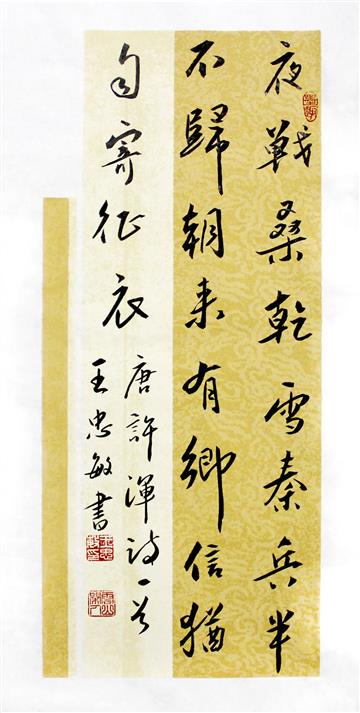 夜戰桑乾雪秦兵半
不歸朝来有鄉信猶
自寄征衣
唐許渾詩一首
王忠敏書